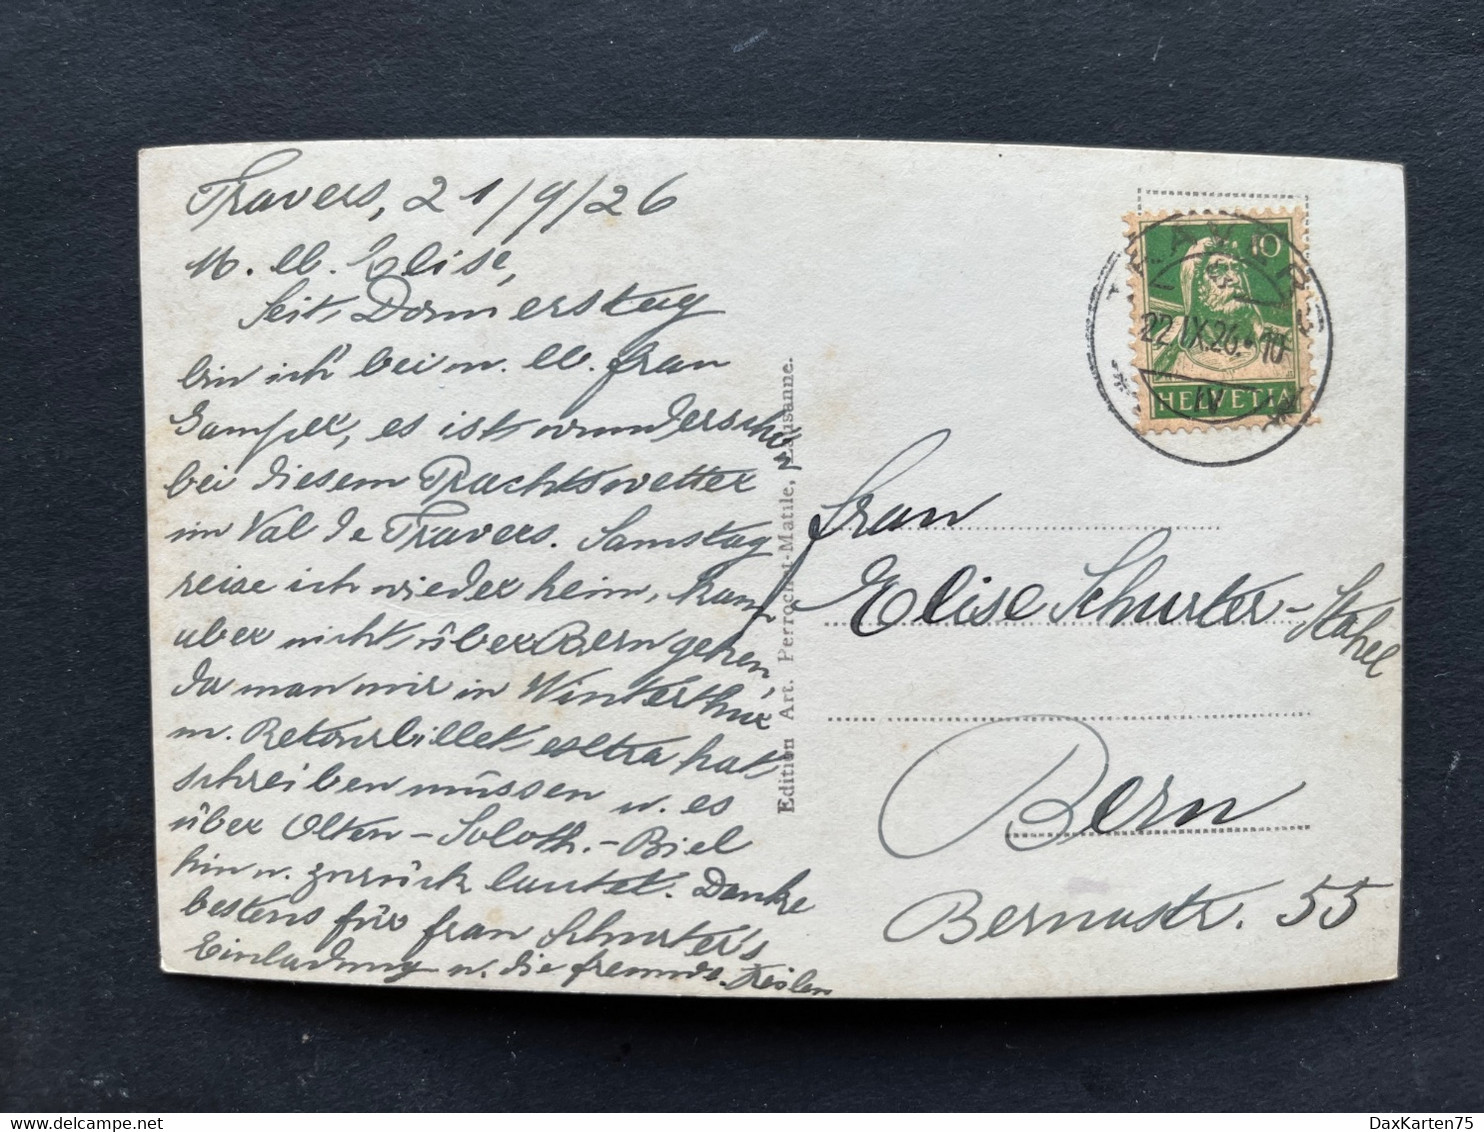 Travers, 21/9/26
M. lb. Elise,
Seit Donnerstag
bin ich bei m. lb. Frau
Gamper, es ist wunderschön
bei diesem Prachtswetter
im Val de Travers. Samstag
reise ich wieder heim, kann
aber nicht über Bern gehen,
da man mir in Winterthur
m. Retourbillet extra hat
schreiben müssen u. es
über Olten - Soloth. - Biel
hin u. zurück lautet. Danke
bestens für Frau Schurter's
Einladung u. die freundl. Zeilen
Edition Art. Perrochet-Matile, Lausanne.
TRAVERS
22.IX.26.-10
IV
10
HELVETIA
Frau
Elise Schurter-Stahel
Bern
Bernastr. 55
DaxKarten75